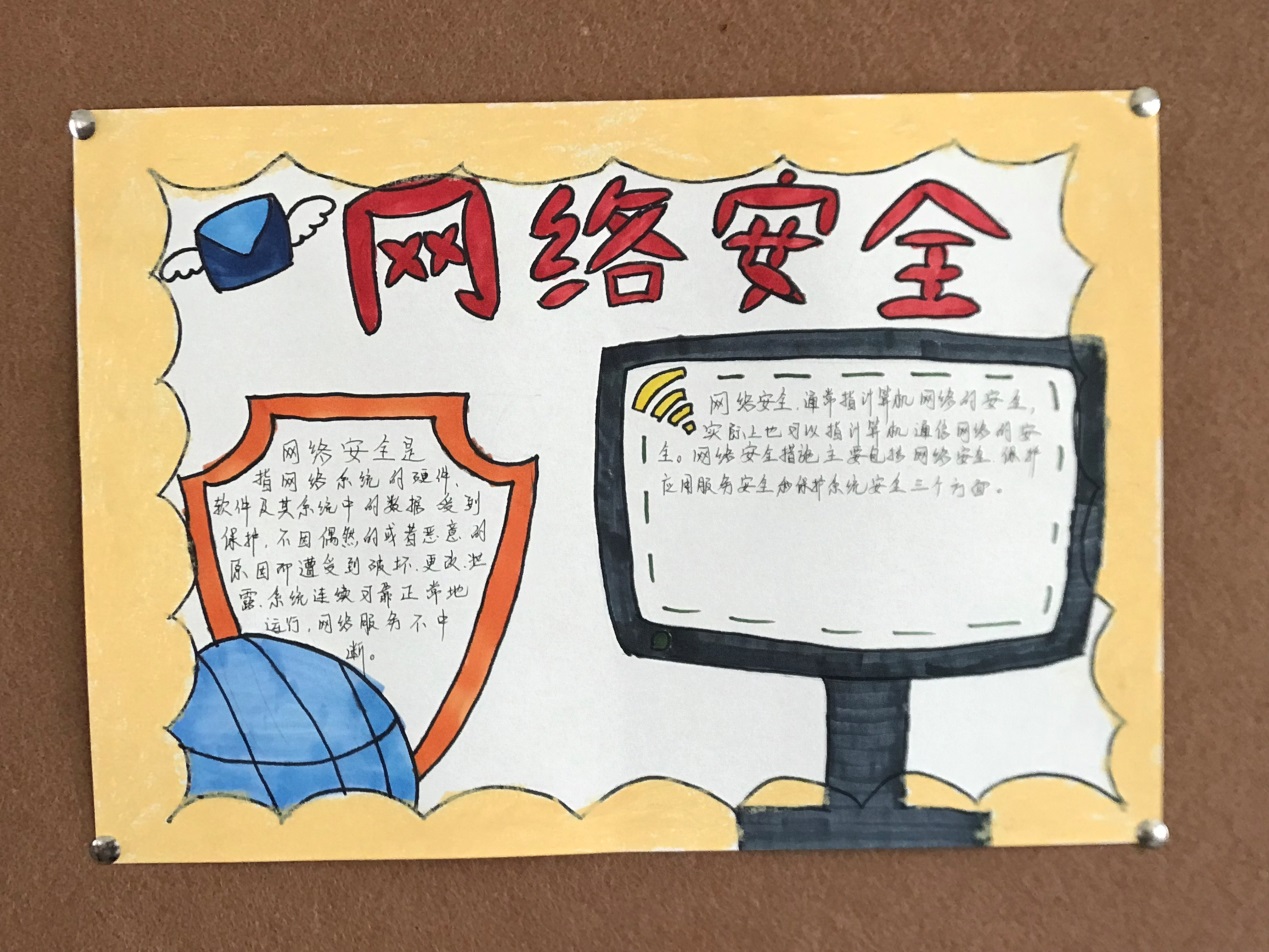 网络安全
网络安全是
指网络系统的硬件、
软件及其系统中的数据受到
保护，不因偶然的或者恶意的
原因而遭受到破坏、更改、泄
露、系统连续可靠正常地
运行，网络服务不中
断。
网络安全，通常指计算机网络的安全，
实际上也可以指计算机通信网络的安
全。网络安全措施主要包括网络安全保护
应用服务安全和保护系统安全三个方面。